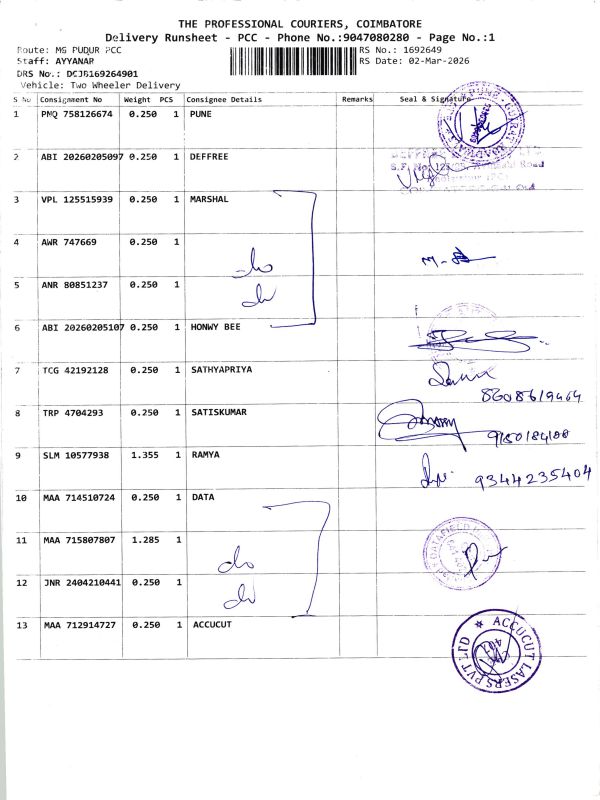 THE PROFESSIONAL COURIERS, COIMBATORE
Delivery Runsheet - PCC - Phone No.:9047080280 - Page No.:1
Route: MG PUDUR PCC RS No.: 1692649
Staff: AYYANAR RS Date: 02-Mar-2026
DRS No.: DCJB169264901
Vehicle: Two Wheeler Delivery
S No Consignment No Weight PCS Consignee Details Remarks Seal & Signature
1 PMQ 758126674 0.250 1 PUNE
2 ABI 20260205097 0.250 1 DEFFREE
S.F. No. Road
3 VPL 125515939 0.250 1 MARSHAL
4 AWR 747669 0.250 1
do
5 ANR 80851237 0.250 1
do
6 ABI 20260205107 0.250 1 HONWY BEE
7 TCG 42192128 0.250 1 SATHYAPRIYA
8608619464
8 TRP 4704293 0.250 1 SATISKUMAR
9 SLM 10577938 1.355 1 RAMYA
9344235404
10 MAA 714510724 0.250 1 DATA
11 MAA 715807807 1.285 1
do
12 JNR 2404210441 0.250 1
do
13 MAA 712914727 0.250 1 ACCUCUT
ACCUCUT LASERS PVT LTD